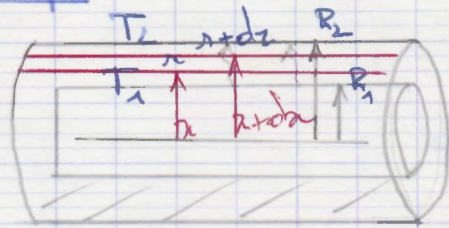 T₂ r r+dr R₂
T₁ R₁
r r+dr